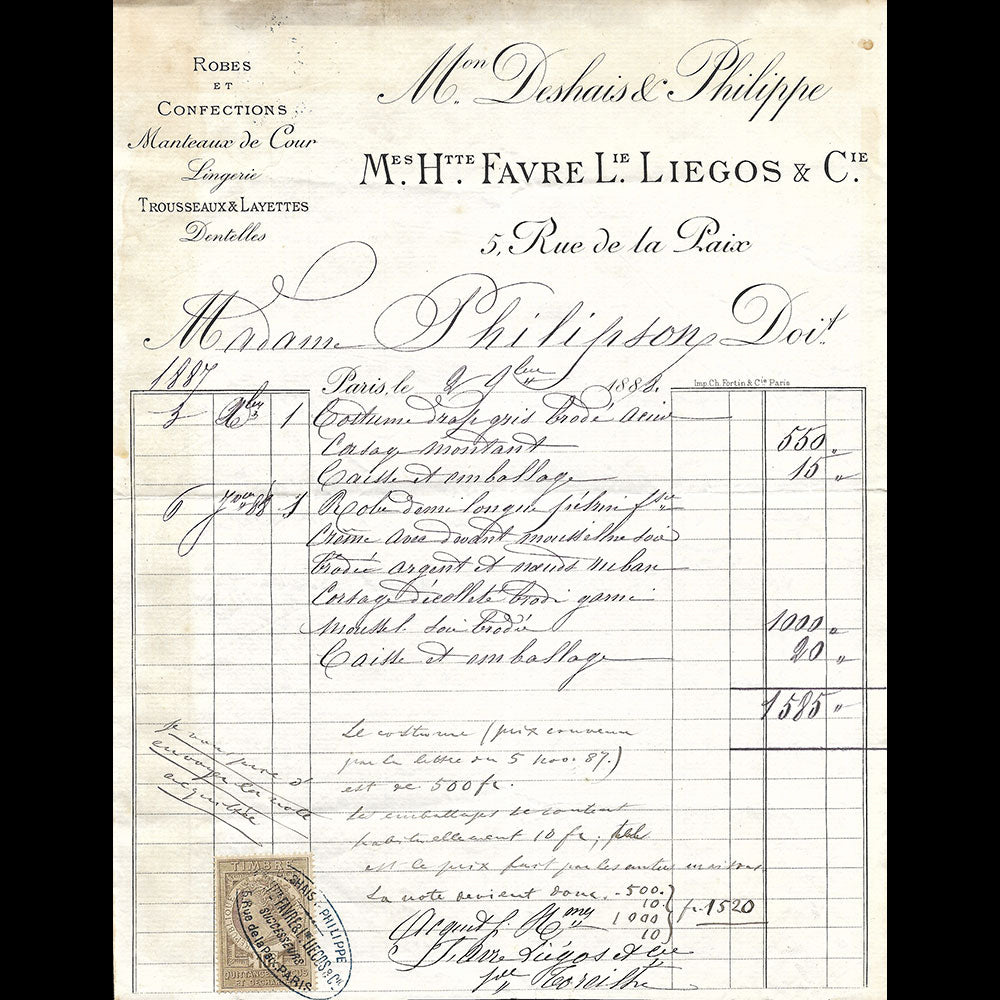 ROBES
ET
CONFECTIONS
Manteaux de Cour
Lingerie
TROUSSEAUX & LAYETTES
Dentelles
Mon. Deshais & Philippe
Mes. Htte. FAVRE Lie. LIEGOS & Cie.
5, Rue de la Paix
Madame Philipson Doit
1887
Paris, le 2 9bre 1888.
Imp. Ch. Fortin & Cie Paris
5 Xbre 1 Costume drap gris brodé acier
Corsage montant 550 "
Caisse et emballage 15 "
6 88 1 Robe demi longue
Crême avec devant mousseline soie
brodée argent et nœuds ruban
Corsage décolleté brodé garni
Moussel. soie brodée 1000 "
Caisse et emballage 20 "
1585 "
Je vous prie d
envoyer la note
acquittée
Le costume (prix convenu
par la lettre du 5 nov. 87.)
est de 500 fr.
les emballages se comptent
habituellement 10 fr;
est le prix fait par les autres maisons
La note devient donc. 500.
10
1000
10
fr. 1520
Acquit p. Mmes
Favre Liégos et Cie
TIMBRE
DESHAIS & PHILIPPE
Htte FAVRE Lie LIEGOS & Cie
SUCCESSEURS
5, Rue de la Paix, PARIS
QUITTANCES